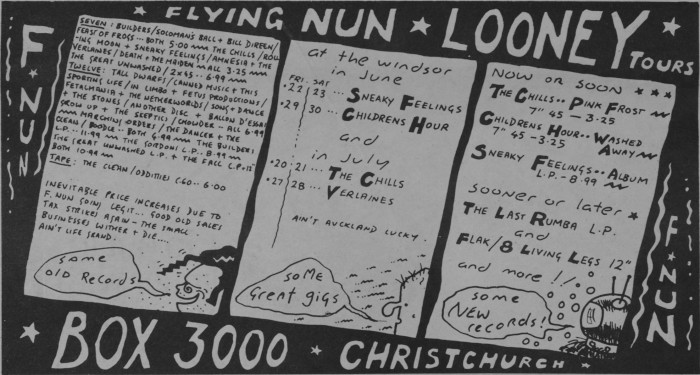 ★ FLYING NUN ★ LOONEY ★ TOURS
F. NUN
SEVEN: BUILDERS/SOLOMAN'S BALL + BILL DIREEN/
FEAST OF FROGS... BOTH 5·00 THE CHILLS/ROLL
-ING MOON + SNEAKY FEELINGS/AMNESIA + THE
VERLAINES/DEATH + THE MAIDEN ALL 3·25
THE GREAT UNWASHED/2x45 · 6·99
TWELVE: TALL DWARFS/CANNED MUSIC + THIS
SPORTING LIFE/IN LIMBO + FETUS PRODUCTIONS/
FETALMANIA + THE NETHERWORLDS/SONG + DANCE
+ THE STONES/ANOTHER DISC + BALLON D'ESSAI/
GROW UP + THE SKEPTICS/CHOWDER.. ALL 6·99
MARCHING ORDERS/THE DANCER + THE
CLEAN/BOODLE.. BOTH 6·99 THE BUILDERS
L.P... 11·99 THE GORDONS L.P... 8·99
THE GREAT UNWASHED L.P. + THE FALL L.P.
BOTH 10·99
TAPE: THE CLEAN/ODDITIES C60... 6·00
INEVITABLE PRICE INCREASES DUE TO
F. NUN GOING LEGIT... GOOD OLD SALES
TAX STRIKES AGAIN - THE SMALL
BUSINESSES WITHER + DIE....
AIN'T LIFE GRAND.
some
old Records
at the windsor
in June
FRI. SAT
·22 / 23 ... SNEAKY FEELINGS
·29 / 30 ... CHILDRENS HOUR
and
in July
·20 · 21 ... THE CHILLS
·27 / 28 ... VERLAINES
AIN'T AUCKLAND LUCKY.
some
Great gigs
NOW OR SOON ★ ★ ★
THE CHILLS.. PINK FROST
7" 45 – 3·25
CHILDRENS HOUR.. WASHED
7" 45 – 3·25 AWAY
SNEAKY FEELINGS.. ALBUM
L.P. – 8·99
sooner or later ★
THE LAST RUMBA L.P.
and
FLAK/8 LIVING LEGS 12"
and more!!
some
NEW
records!
F. NUN
★ BOX 3000 ★ CHRISTCHURCH ★